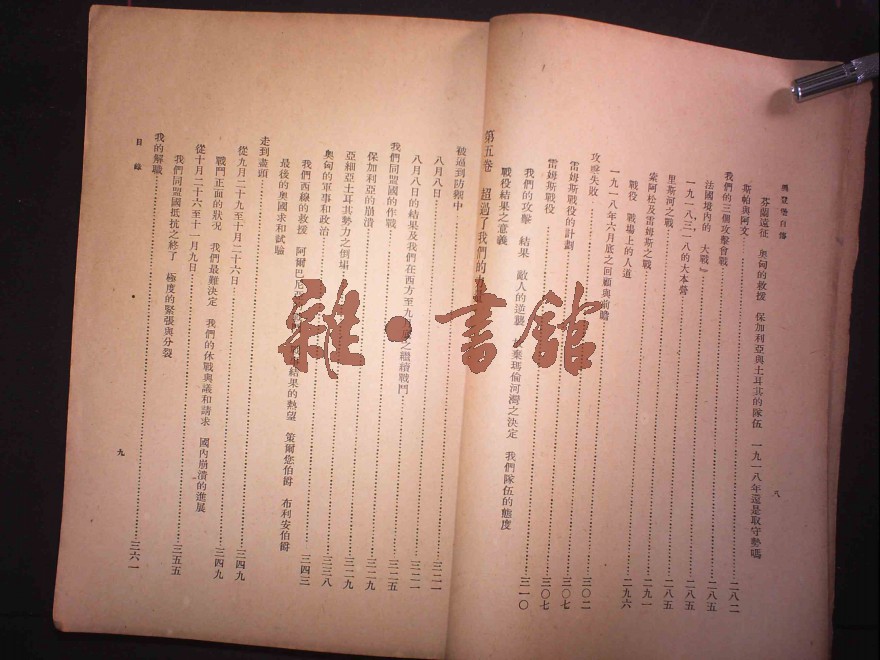 興登堡自傳
八
芬蘭遠征 奧匈的救援 保加利亞與土耳其的隊伍 一九一八年還是取守勢嗎
斯帕與阿文……二八二
我們的三個攻擊會戰……二八五
法國境內的『大戰』……二八五
一九一八，三一八的大本營……二八五
里斯河之戰……二九一
索阿松及雷姆斯之戰……二九六
戰役 戰場上的人道
一九一八年六月底之回顧與前瞻
攻擊失敗……三〇二
雷姆斯戰役的計劃……三〇七
雷姆斯戰役……三〇七
我們的攻擊 結果 敵人的逆襲 棄瑪倫河灣之決定 我們隊伍的態度
戰役結果之意義……三一〇
第五卷 超過了我們的
被逼到防禦中……三二一
八月八日……三二一
八月八日的結果及我們在西方至九 之繼續戰鬥
我們同盟國的作戰……三二五
保加利亞的崩潰……三二九
亞細亞土耳其勢力之倒塌……三二九
奧匈的軍事和政治……三三八
我們西線的救援 阿爾巴尼亞 結果的熱望 策爾您伯爵 布利安伯爵
最後的奧國求和試驗……三四三
走到盡頭
從九月二十九至十月二十六日……三四九
戰鬥正面的狀況 我們最難決定 我們的休戰與議和請求 國內崩潰的進展
從十月二十六至十一月九日……三四九
我們同盟國抵抗之終了 極度的緊張與分裂……三五五
我的解職……三六一
目錄
九
雜·書館